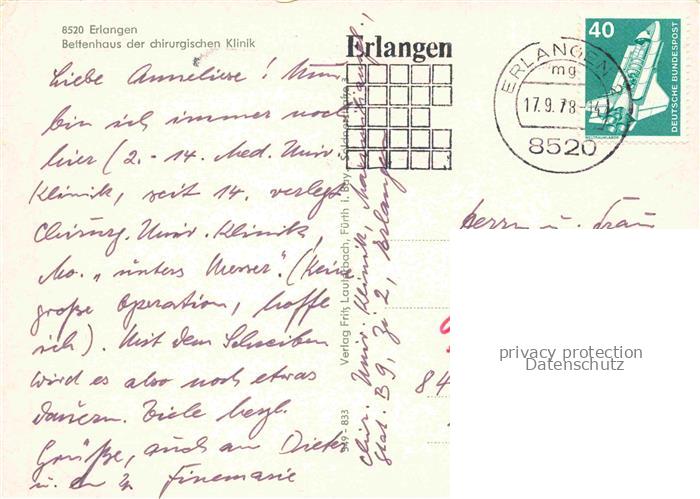 8520 Erlangen
Bettenhaus der chirurgischen Klinik
Liebe Anneliese! Nun
bin ich immer noch
hier (2. - 14. Med. Univ.
Klinik, seit 14. verlegt
Chirurg. Univ. Klinik,
Mo. „unters Messer". (Keine
große Operation, hoffe
ich). Mit dem Schreiben
wird es also noch etwas
dauern. Viele herzl.
Grüße, auch an Dieter
u.
Chir. Univ. Klinik,
Stat. B 9, Zi 2, Erlangen
949 - 833
Verlag Fritz Lauterbach, Fürth i. Bay.
Erlangen
ERLANGEN
mg
17.9.78-14
8520
40
DEUTSCHE BUNDESPOST
Herrn u. Frau
84
privacy protection
Datenschutz